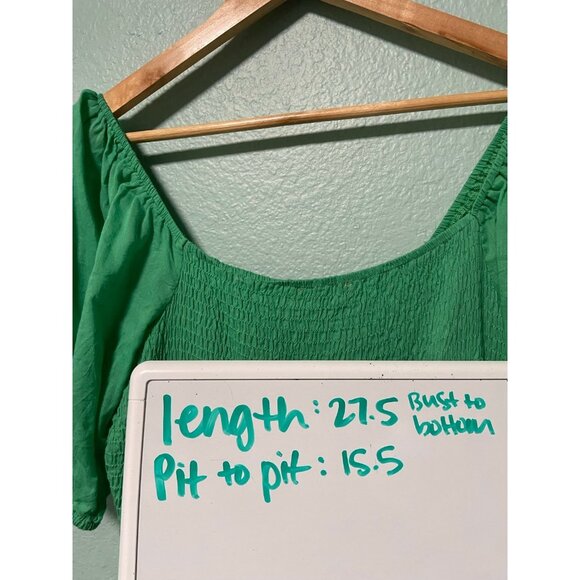 length: 27.5 Bust to bottom
Pit to pit: 15.5